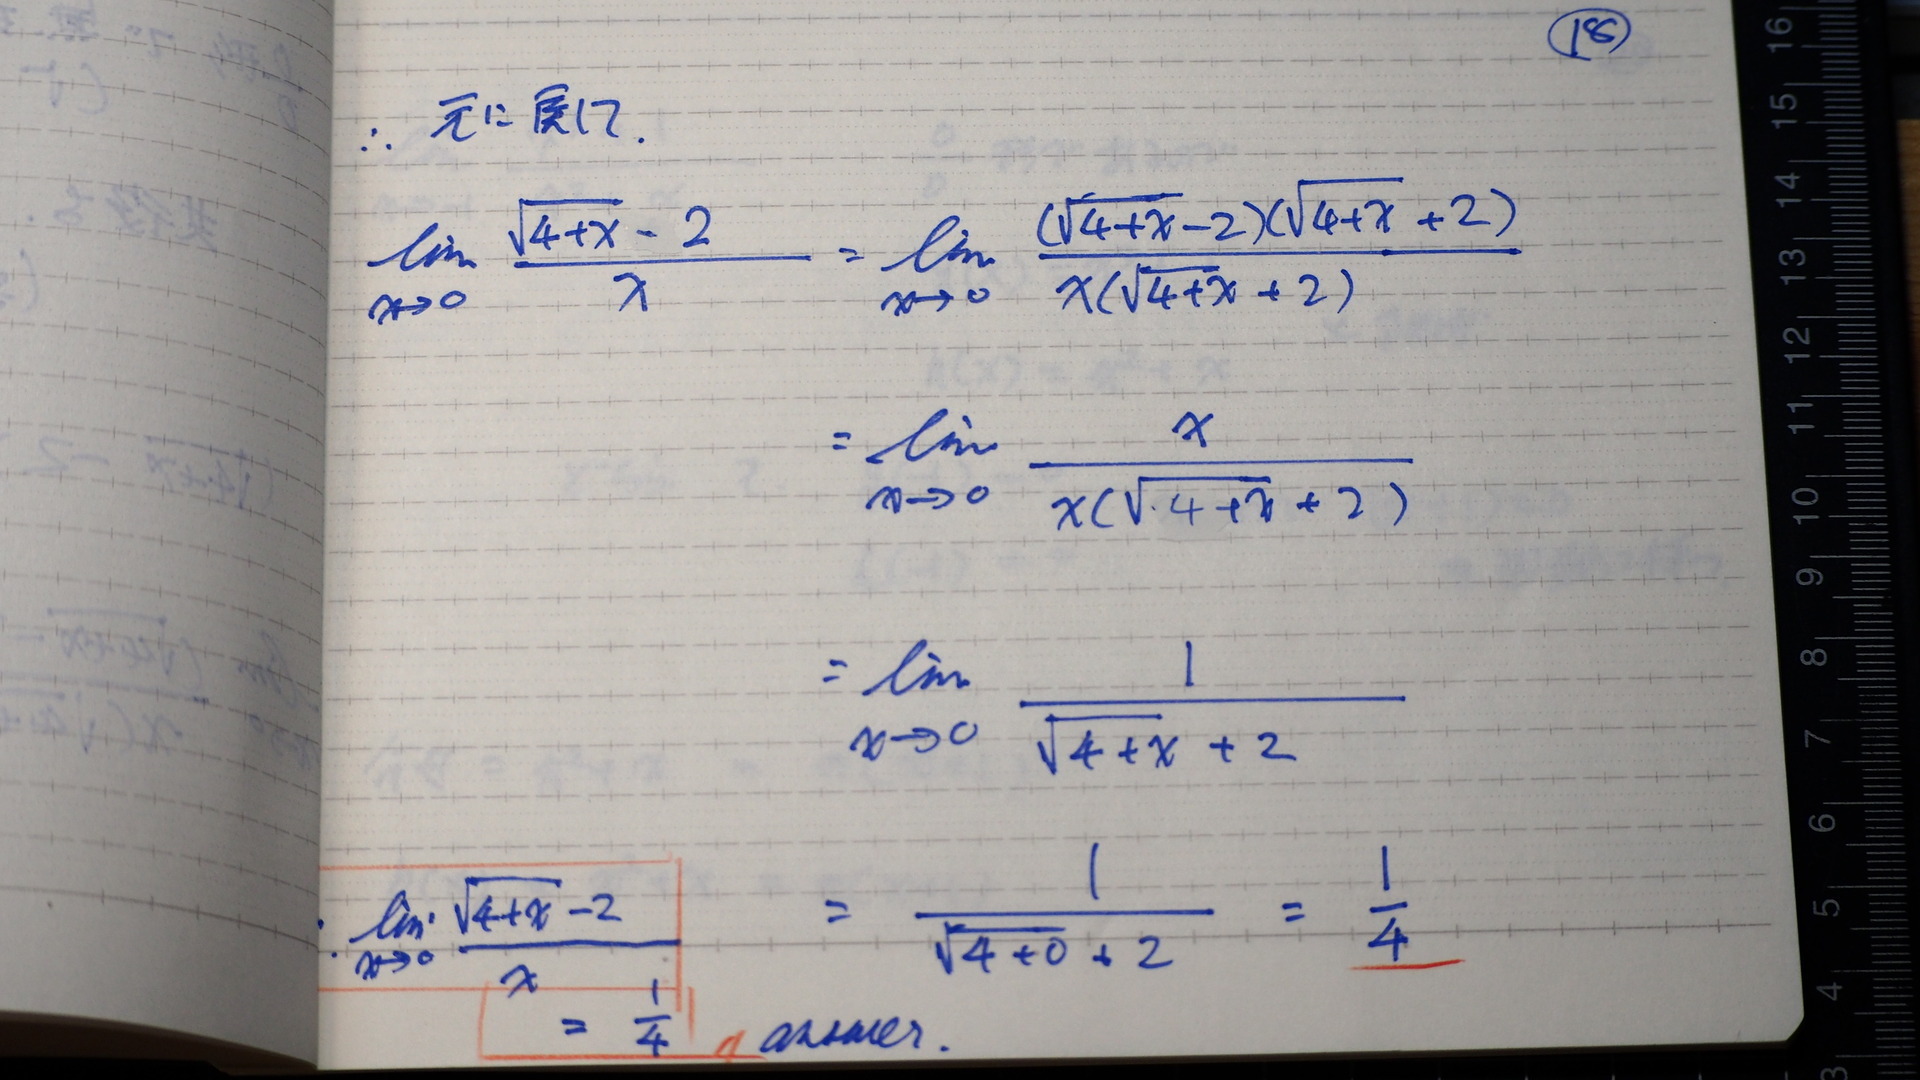 ⑱
∴ 元に戻して.
lim x→0 (√(4+x) - 2)/x = lim x→0 ((√(4+x) - 2)(√(4+x) + 2))/(x(√(4+x) + 2))
= lim x→0 x/(x(√(4+x) + 2))
= lim x→0 1/(√(4+x) + 2)
= 1/(√(4+0) + 2) = 1/4
∴ lim x→0 (√(4+x) - 2)/x
= 1/4 answer.
16
15
14
13
12
11
10
9
8
7
6
5
4
3